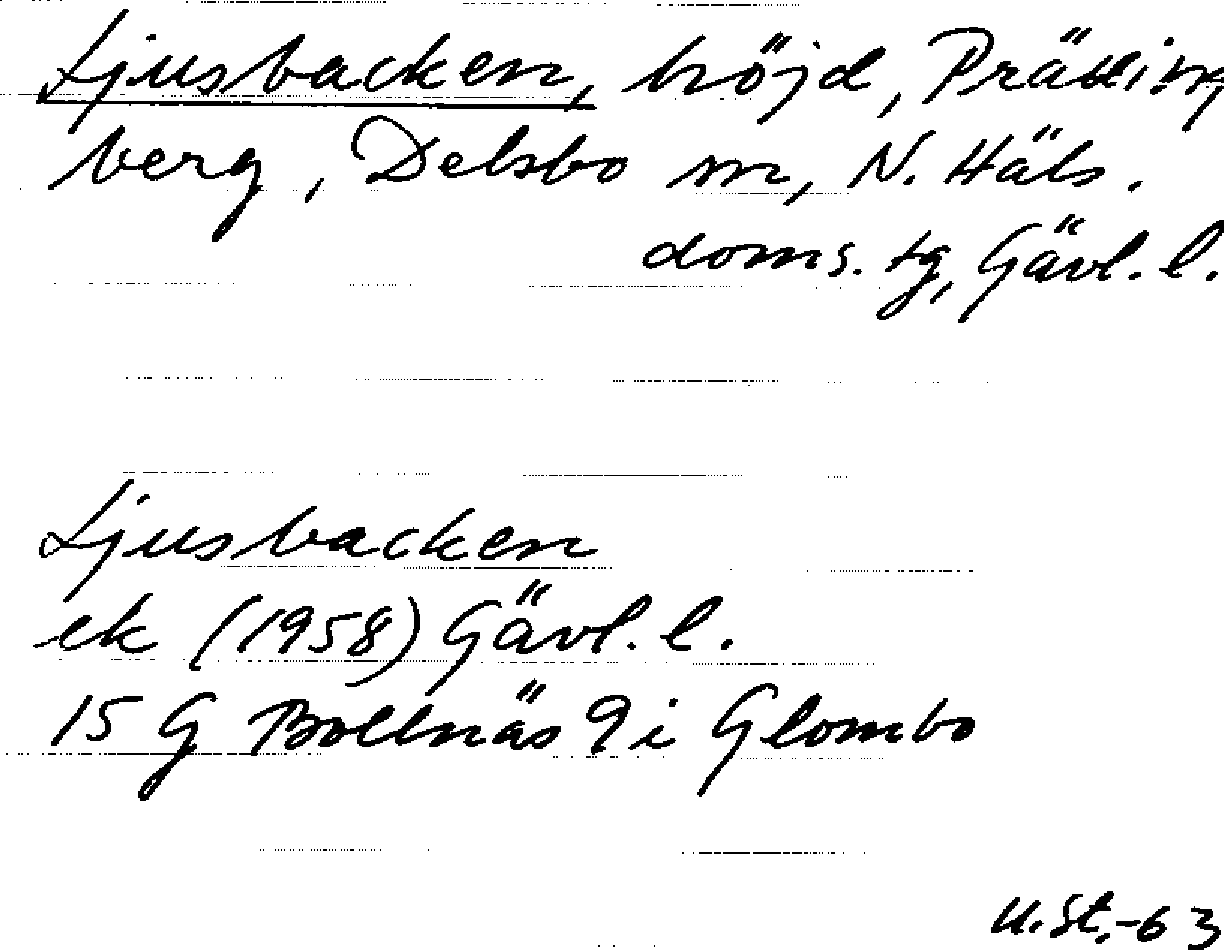 Ljusbacken, höjd, Prästing
berg, Delsbo sn, N. Häls.
doms. tg, Gävl. l.
Ljusbacken
ek (1958) Gävl. l.
15 G Bollnäs 9 i Glombo
U.St.-63